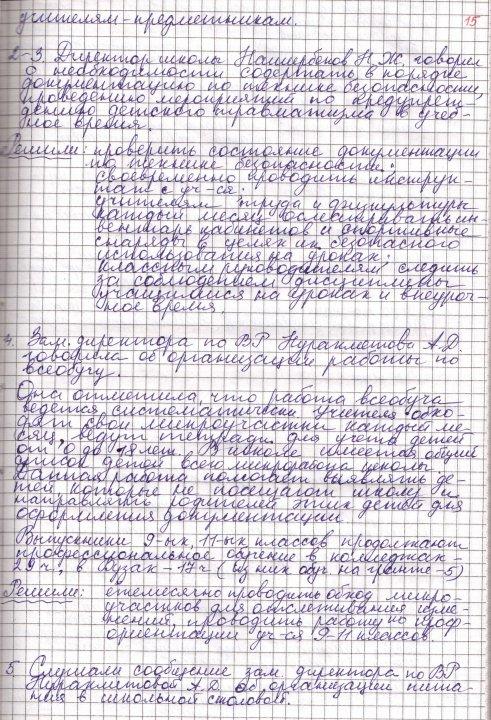 учителям-предметникам.
15
2-3. Директор школы Наширбеков Н.Ж. говорил
о необходимости содержать в порядке
документацию по технике безопасности,
проведению мероприятий по предупреж-
дению детского травматизма в учеб-
ное время.
Решили: проверить состояние документации
по технике безопасности;
своевременно проводить инструк-
таж с уч-ся;
учителям труда и физкультуры
каждый месяц осматривать ин-
вентарь кабинетов и спортивные
снаряды в целях их безопасного
использования на уроках;
классным руководителям следить
за соблюдением дисциплины
учащимися на уроках и внеуроч-
ное время.
4. Зам. директора по ВР Нурахметова А.Д.
говорила об организации работы по
всеобучу.
Она отметила, что работа всеобуча
ведется систематически. Учителя обхо-
дят свои микроучастки каждый ме-
сяц, ведут тетради для учета детей
от 0 до 18 лет. В школе имеется общий
список детей всего микрорайона школы.
Данная работа помогает выявлять де-
тей которые не посещают школу и
направлять родителей этих детей для
оформления документации.
Выпускники 9-ых, 11-ых классов продолжают
профессиональное обучение в колледжах -
29 ч, в Вузах - 17 ч (из них обуч. на гранте - 5)
Решили: ежемесячно проводить обход микро-
участков для отслеживания изме-
нений, проводить работу по проф-
ориентации уч-ся 9-11 классов.
5. Слушали сообщение зам. директора по ВР
Нурахметовой А.Д. об организации пита-
ния в школьной столовой.